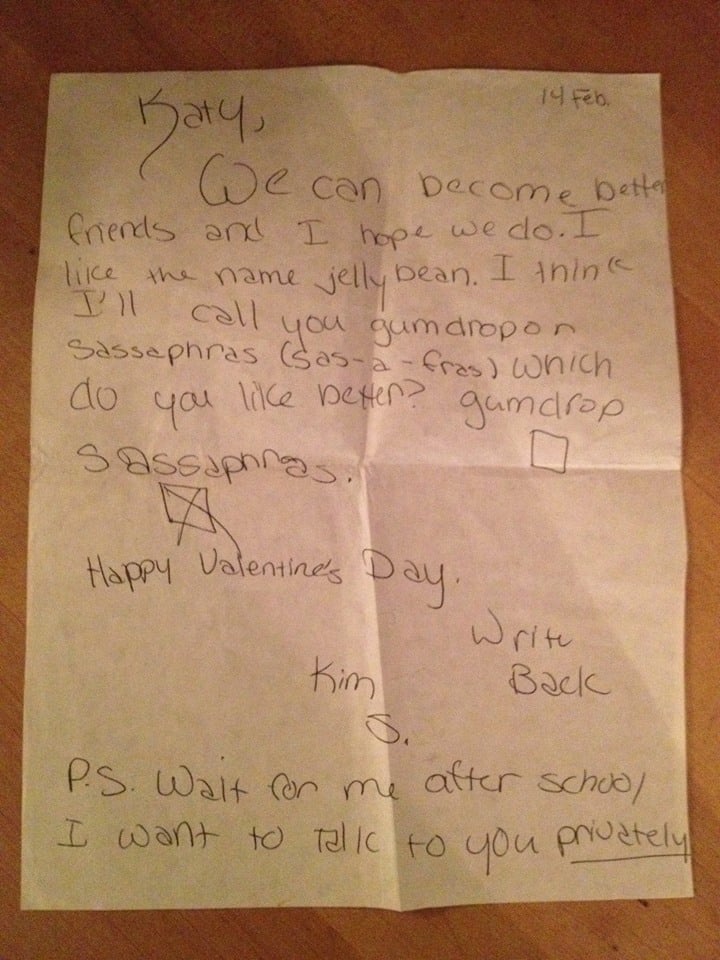 14 Feb.
Katy,
We can become better
friends and I hope we do. I
like the name jellybean. I think
I'll call you gumdrop or
Sassaphras (sas-a-fras) which
do you like better? gumdrop
Sassaphras.
Happy Valentine's Day.
Write
Back
Kim
S.
P.S. Wait for me after school
I want to talk to you privately